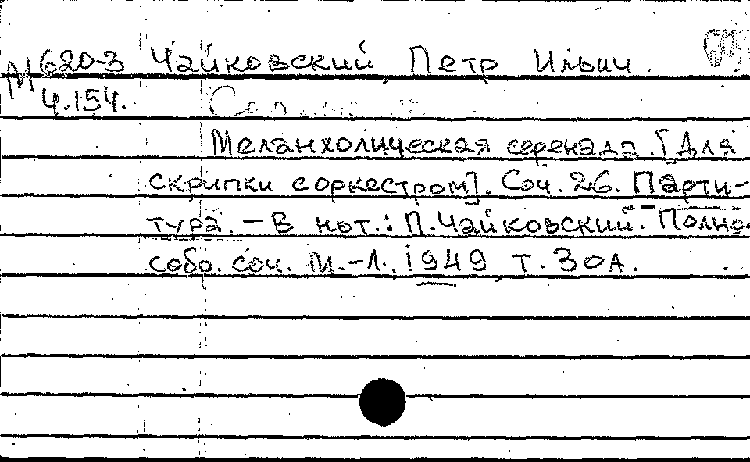 М 620-3 Чайковский Петр Ильич.
Ч.154.
Меланхолическая серенада. [Для
скрипки с оркестром]. Соч. 26. Парти-
тура. — В нот.: П. Чайковский. Полное
собр. соч. М.-Л., 1949 т. 30А.